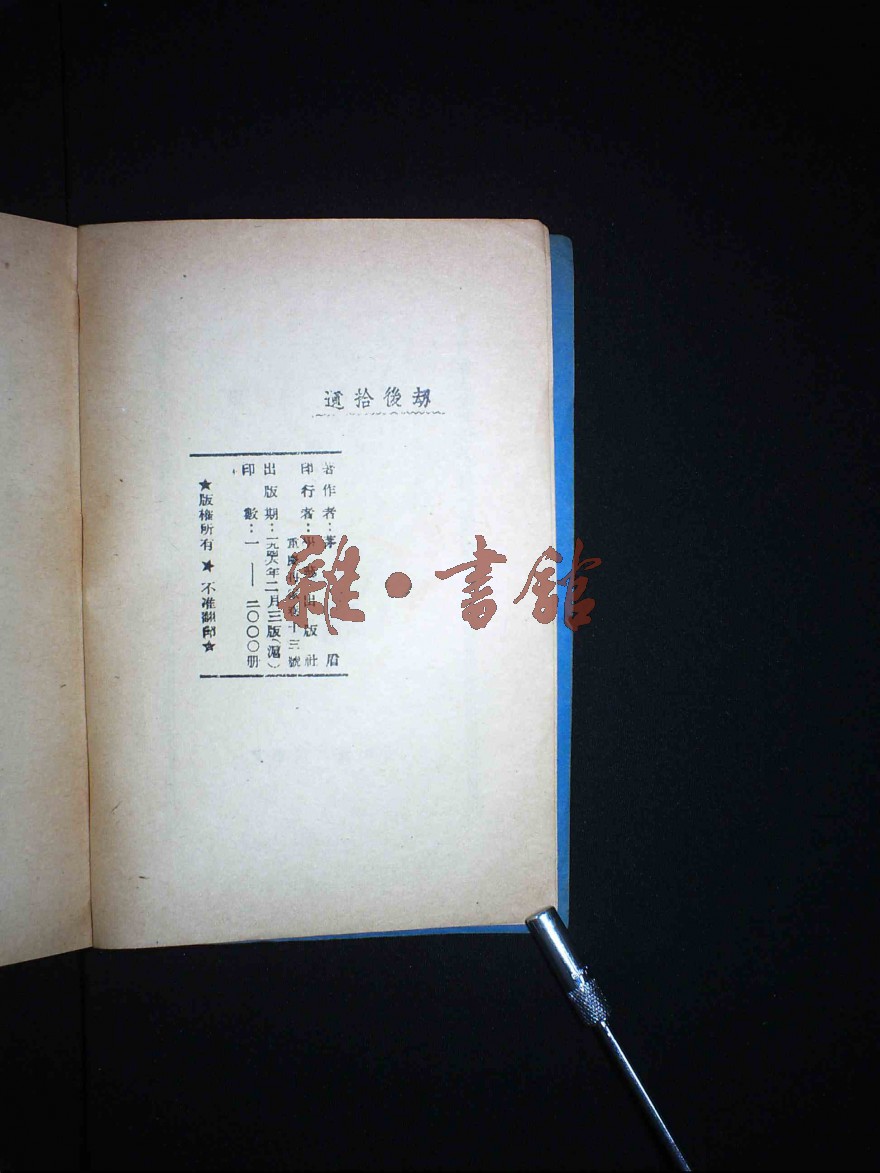 劫後拾遺
著作者：茅盾
印行者：學藝出版社
重慶市十三號
出版期：一九四六年二月三版（滬）
印數：一——二〇〇〇册
★版權所有★不准翻印★
雜·書館